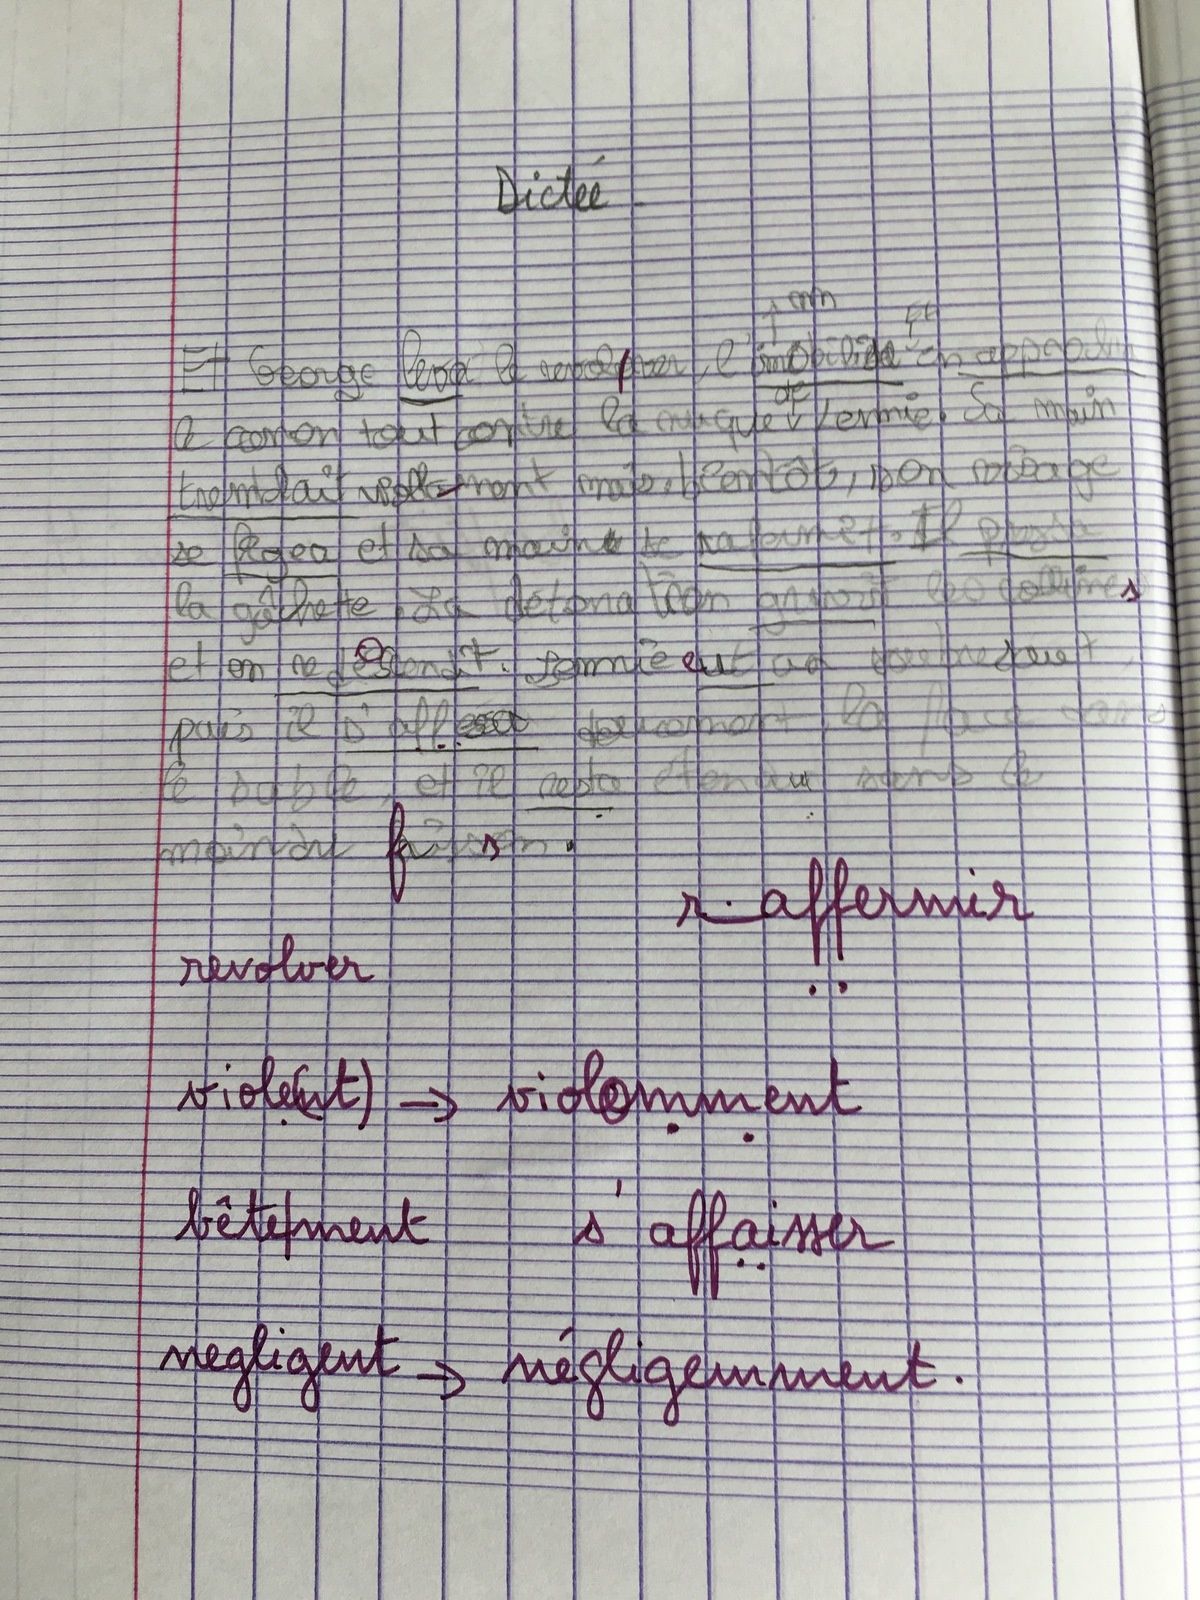 Dictée
mm
Et George leva le revolver, l'imobilisa en appro
de
le canon tout contre la nuque Lennie. Sa main
tremblait mais bientôt, son visage
se figea et sa main se rafermit. Il pressa
la gâchette. La détonation gravit les collines
et en redescendit. Lennie eut un
puis il s' doucement, la face dans
le sable, et il resta étendu sans le
moindre frisson.
r.affermir
revolver
viole(nt) → violemment
bêtement s'affaisser
negligent → négligemment.